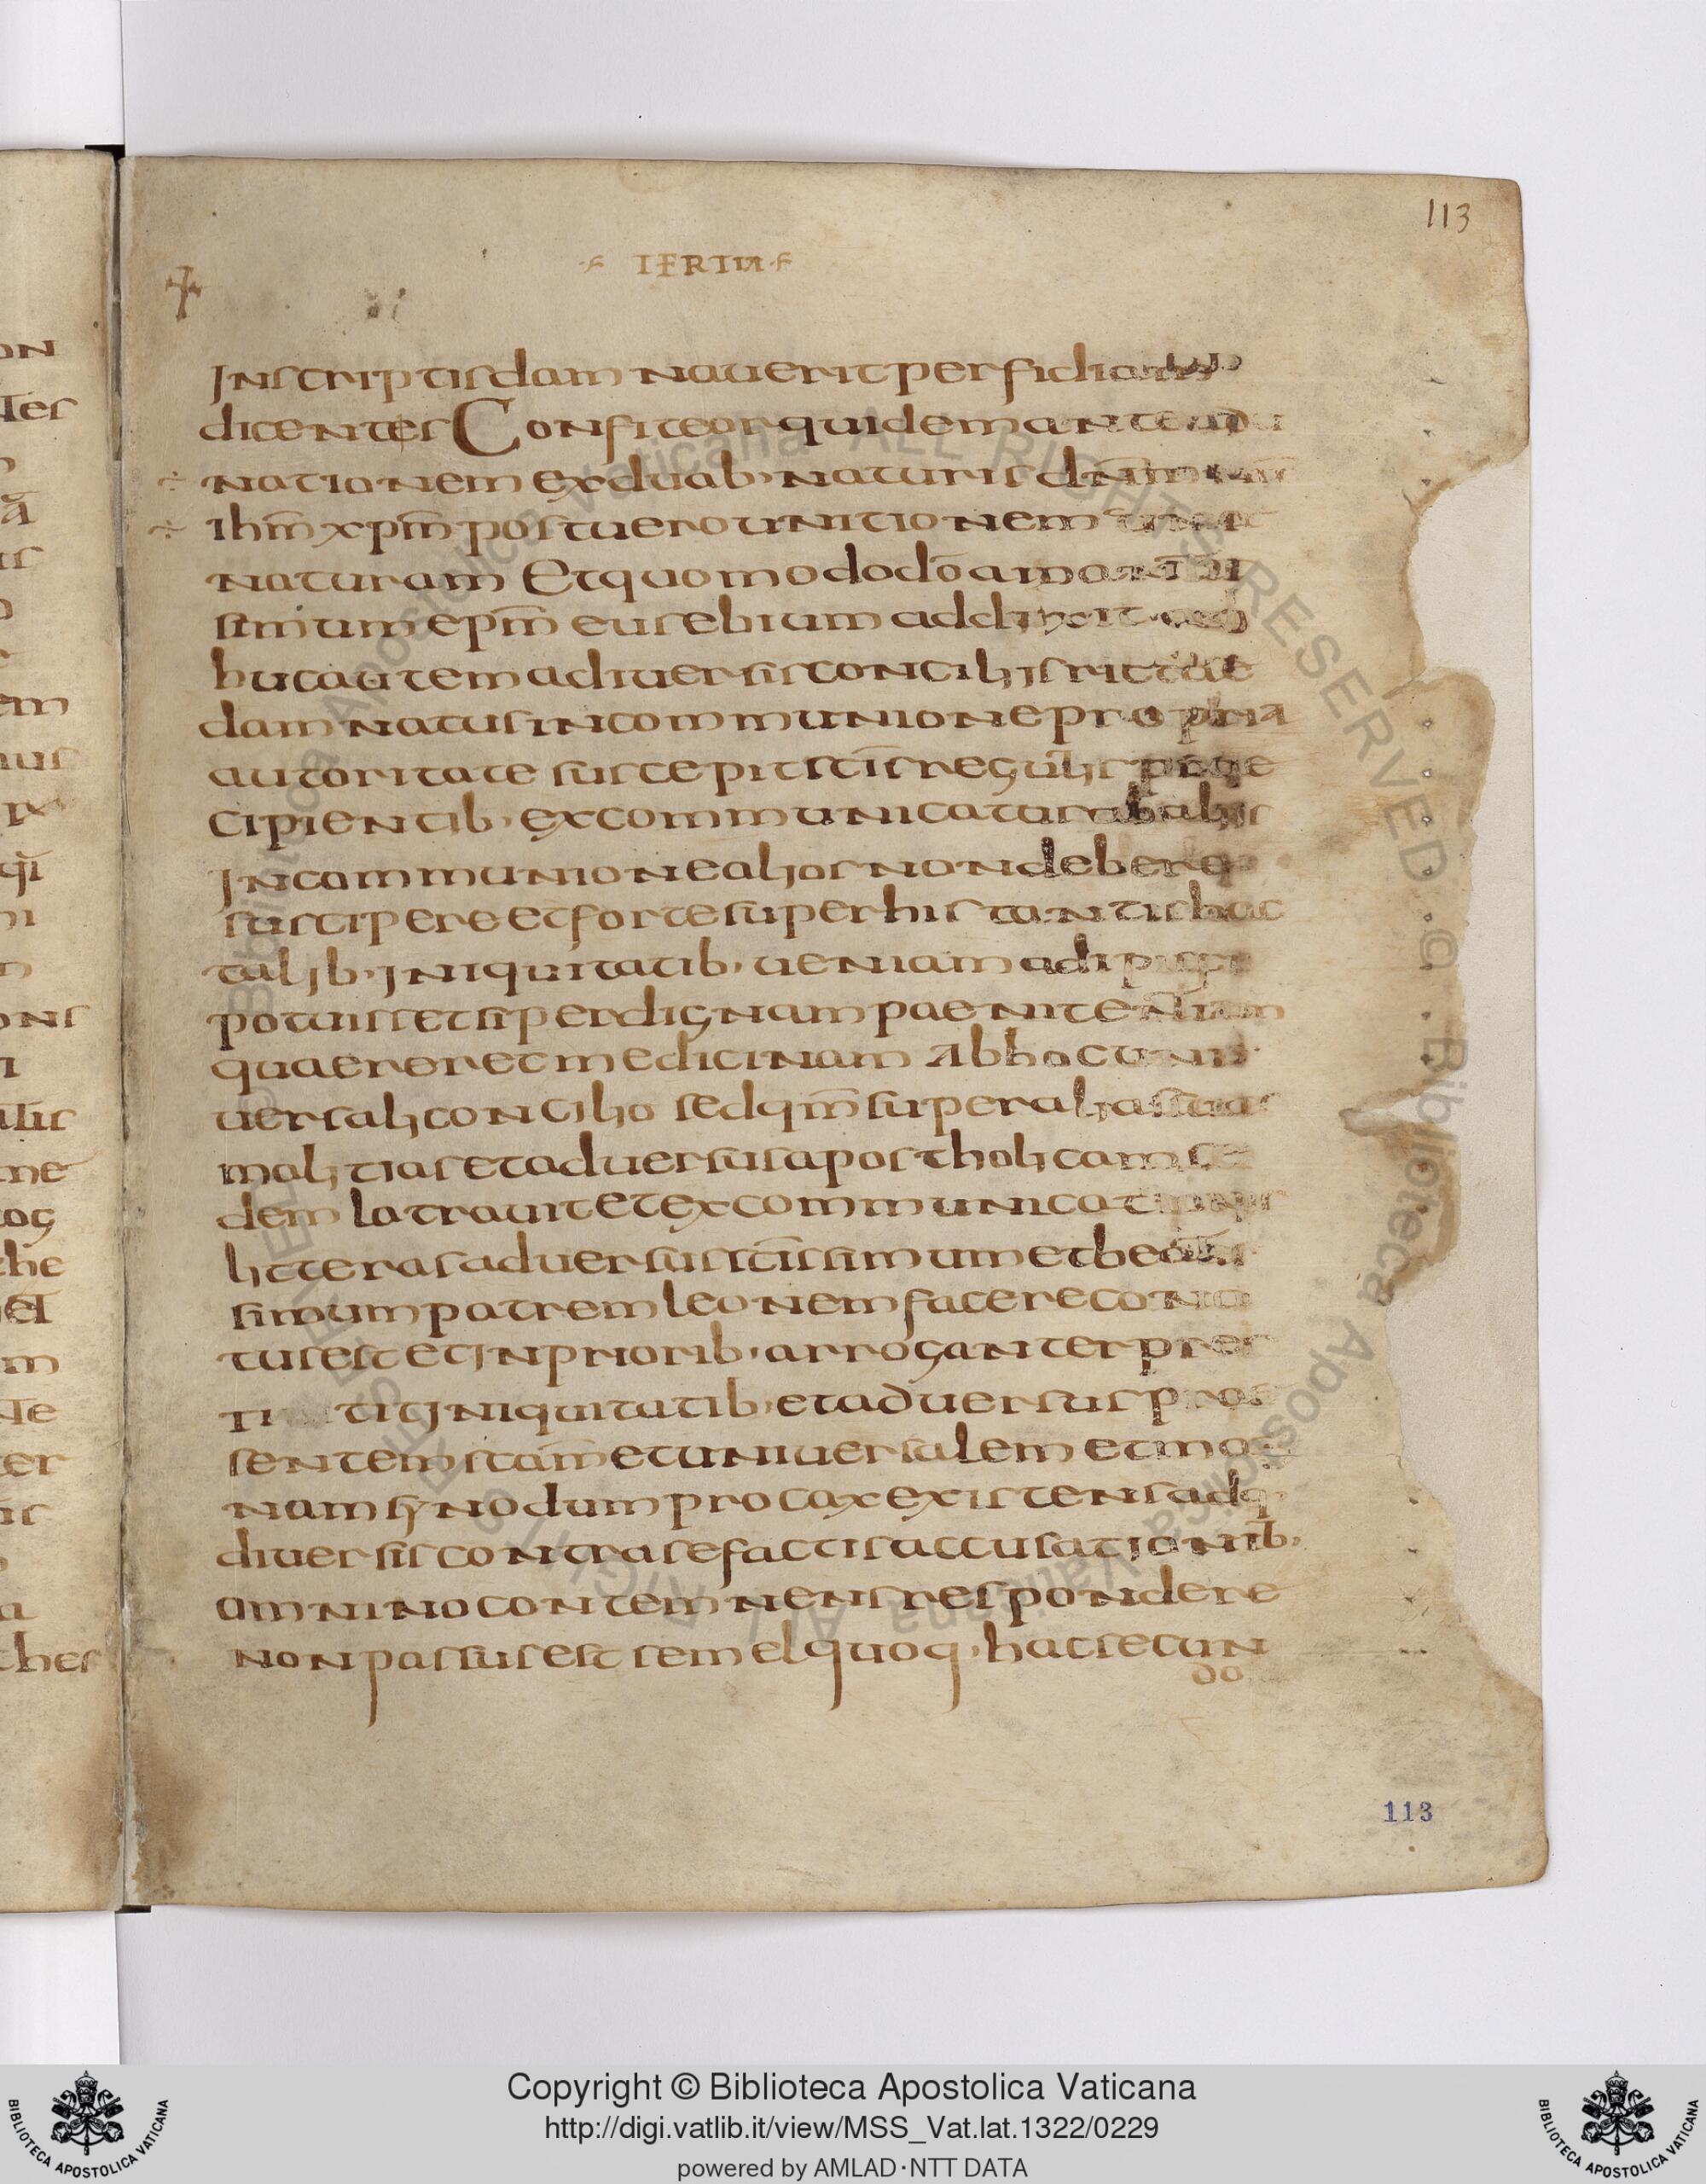 113
IERIM
Inscriptis damnaverit perfidiam
dicentes Confiteor quidem ante adu
nationem ex duab· naturis dn̄m
ihm̄ xpm̄ post vero unitionem
naturam Et quomodo dō amantis
simum epm̄ eusebium addixit
huc autem a diversis conciliis rite
damnatus in communione propria
autoritate suscepit sc̄is regulis prae
cipientib· excommunicatus ab aliis
In communione alios non debere
suscipere et forte super his tantis hac
talib· iniquitatib· veniam adipisci
potuisset si per dignam paenitentiam
quaereret medicinam Ab hoc uni
versali concilio sed qm̄ super alias suas
malitias et adversus apostholicam se
dem latravit et excommunicationis
litteras adversus sc̄issimum et beatis
simum patrem leonem facere cona
tus est et in priorib· arroganter pres
titit iniquitatib· et adversus prae
sentem sc̄am et universalem et mag
nam synodum procax existens adq·
diversis contra se factis accusationib·
omnino contemnens respondere
non passus est semel quoq· hac secun
do
113
on
Ter
ā
us
em
mus
qi
ni
ons
me
tog
che
m
Te
ter
is
a
ches
Copyright © Biblioteca Apostolica Vaticana
http://digi.vatlib.it/view/MSS_Vat.lat.1322/0229
powered by AMLAD·NTT DATA
BIBLIOTECA APOSTOLICA VATICANA
BIBLIOTECA APOSTOLICA VATICANA